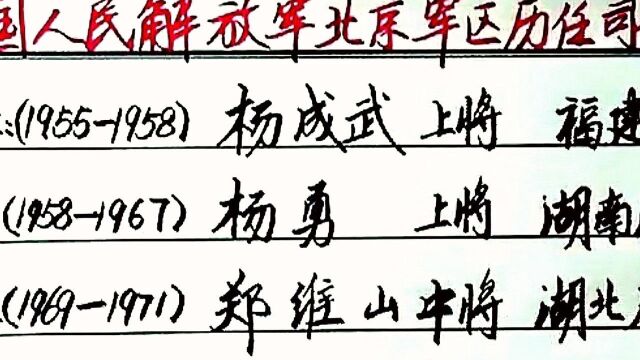 国人民解放军北京军区历任司
:(1955-1958) 杨成武 上将 福建
(1958-1967) 杨勇 上将 湖南
(1969-1971) 郑维山 中将 湖北